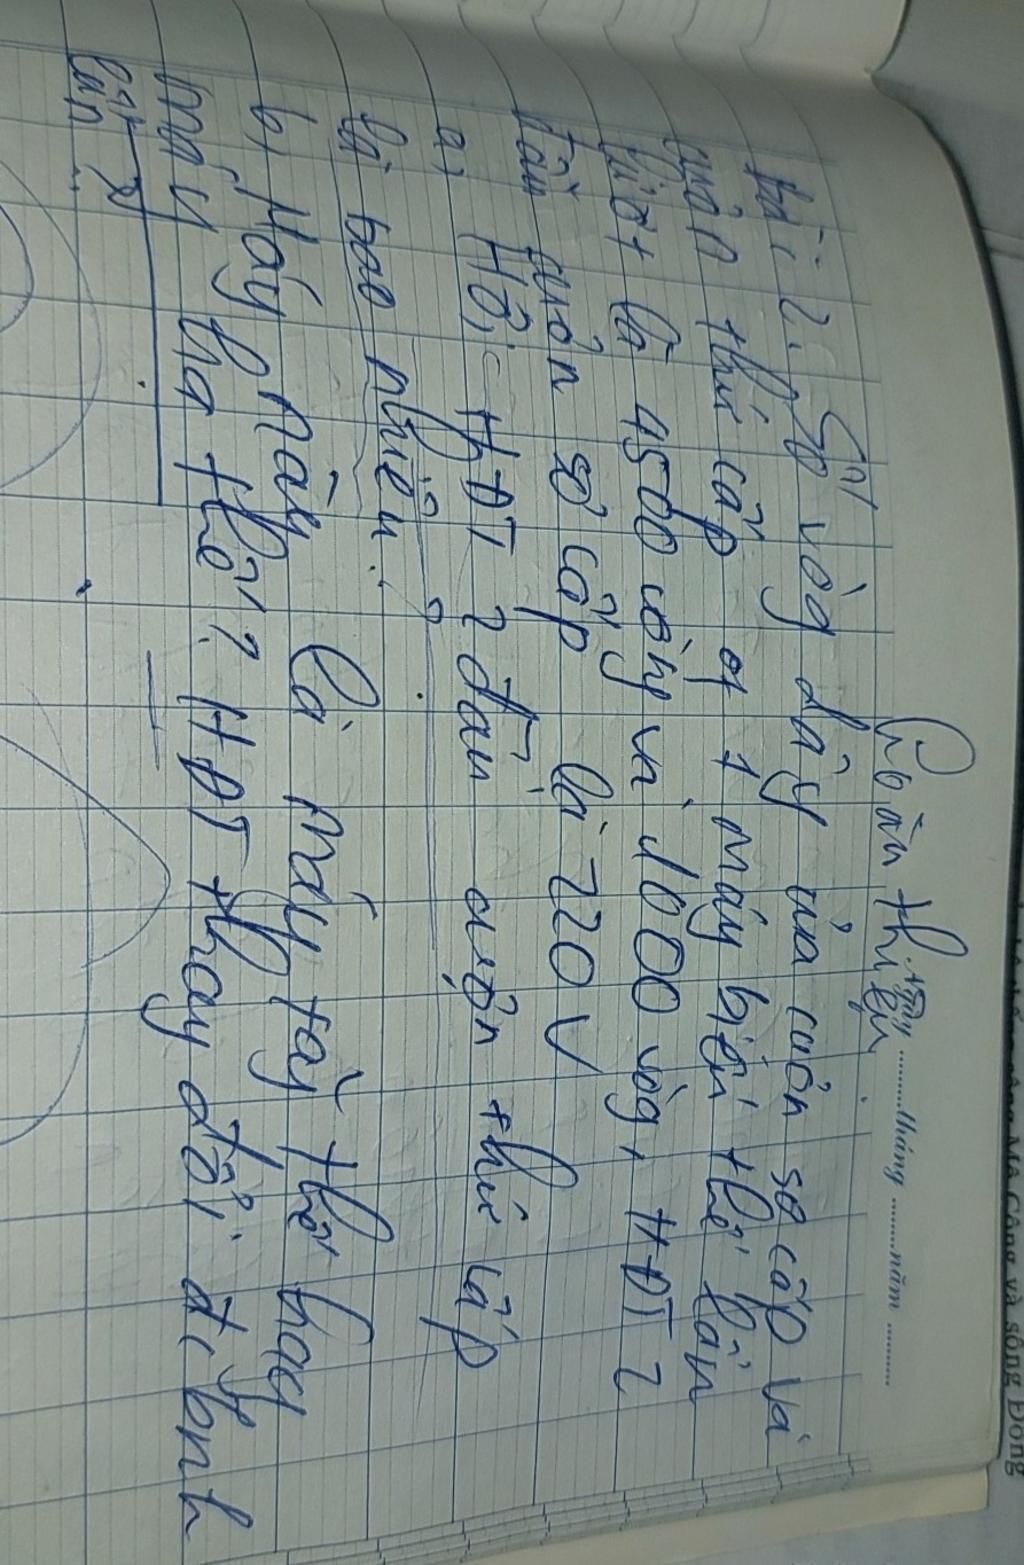 Ngày ......... tháng ......... năm .........
Hoàn thiện
Bài 2: Số vòg dây của cuôn sơ cấp và
cuôn thứ cấp of 1 máy biến thế lần
lượt là 4500 vòg và 1000 vòg, HĐT 2
đầu cuôn sơ cấp là 220V
a, Hỏi HĐT 2 đầu cuộn thứ cấp
là bao nhiêu?
b, Máy này là máy tăg thế hay
máy hạ thế? HĐT thay đổi đi bnh
lần?